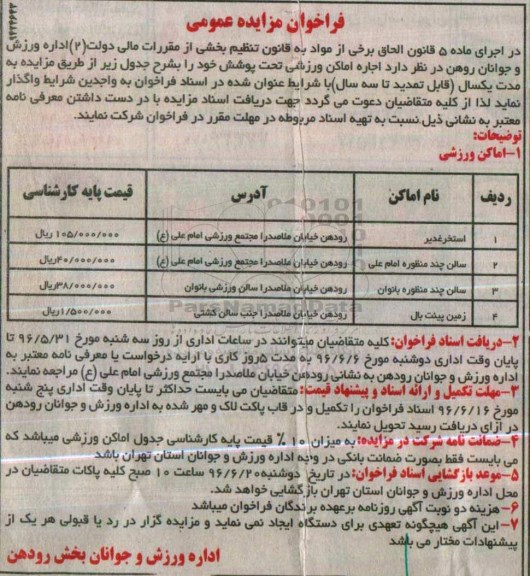 ۹۴۴۴۶۴۳
فراخوان مزایده عمومی
در اجرای ماده ۵ قانون الحاق برخی از مواد به قانون تنظیم بخشی از مقررات مالی دولت(۲)اداره ورزش
و جوانان روهن در نظر دارد اجاره اماکن ورزشی تحت پوشش خود را بشرح جدول زیر از طریق مزایده به
مدت یکسال (قابل تمدید تا سه سال)با شرایط عنوان شده در اسناد فراخوان به واجدین شرایط واگذار
نماید لذا از کلیه متقاضیان دعوت می گردد جهت دریافت اسناد مزایده با در دست داشتن معرفی نامه
معتبر به نشانی ذیل نسبت به تهیه اسناد مربوطه در مهلت مقرر در فراخوان شرکت نمایند.
توضیحات:
۱-اماکن ورزشی
ردیف نام اماکن آدرس قیمت پایه کارشناسی
۱ استخرغدیر رودهن خیابان ملاصدرا مجتمع ورزشی امام علی (ع) ۱۰۵/۰۰۰/۰۰۰ ریال
۲ سالن چند منظوره امام علی رودهن خیابان ملاصدرا مجتمع ورزشی امام علی (ع) ۴۰/۰۰۰/۰۰۰ریال
۳ سالن چند منظوره بانوان رودهن خیابان ملاصدرا سالن ورزشی بانوان ۳۸/۰۰۰/۰۰۰ریال
۴ زمین پینت بال رودهن خیابان ملاصدرا جنب سالن کشتی ۱/۵۰۰/۰۰۰ریال
ParsNamadData
۲-دریافت اسناد فراخوان: کلیه متقاضیان میتوانند در ساعات اداری از روز سه شنبه مورخ ۹۶/۵/۳۱ تا
پایان وقت اداری دوشنبه مورخ ۹۶/۶/۶ به مدت ۵روز کاری با ارایه درخواست یا معرفی نامه معتبر به
اداره ورزش و جوانان رودهن به نشانی رودهن خیابان ملاصدرا مجتمع ورزشی امام علی (ع) مراجعه نمایند.
۳-مهلت تکمیل و ارائه اسناد و پیشنهاد قیمت: متقاضیان می بایست حداکثر تا پایان وقت اداری پنج شنبه
مورخ ۹۶/۶/۱۶ اسناد فراخوان را تکمیل و در قاب پاکت لاک و مهر شده به اداره ورزش و جوانان رودهن
در ازای دریافت رسید تحویل نمایند.
۴-ضمانت نامه شرکت در مزایده: به میزان ۱۰ ٪ قیمت پایه کارشناسی جدول اماکن ورزشی میباشد که
می بایست فقط بصورت ضمانت بانکی در وجه اداره ورزش و جوانان استان تهران باشد
۵-موعد بازگشایی اسناد فراخوان: در تاریخ دوشنبه۹۶/۶/۲۰ ساعت ۱۰ صبح کلیه پاکات متقاضیان در
محل اداره ورزش و جوانان استان تهران بازگشایی خواهد شد.
۶-هزینه دو نوبت آگهی روزنامه برعهده برندگان فراخوان میباشد
۷-این آگهی هیچگونه تعهدی برای دستگاه ایجاد نمی نماید و مزایده گزار در رد یا قبولی هر یک از
پیشنهادات مختار می باشد
اداره ورزش و جوانان بخش رودهن